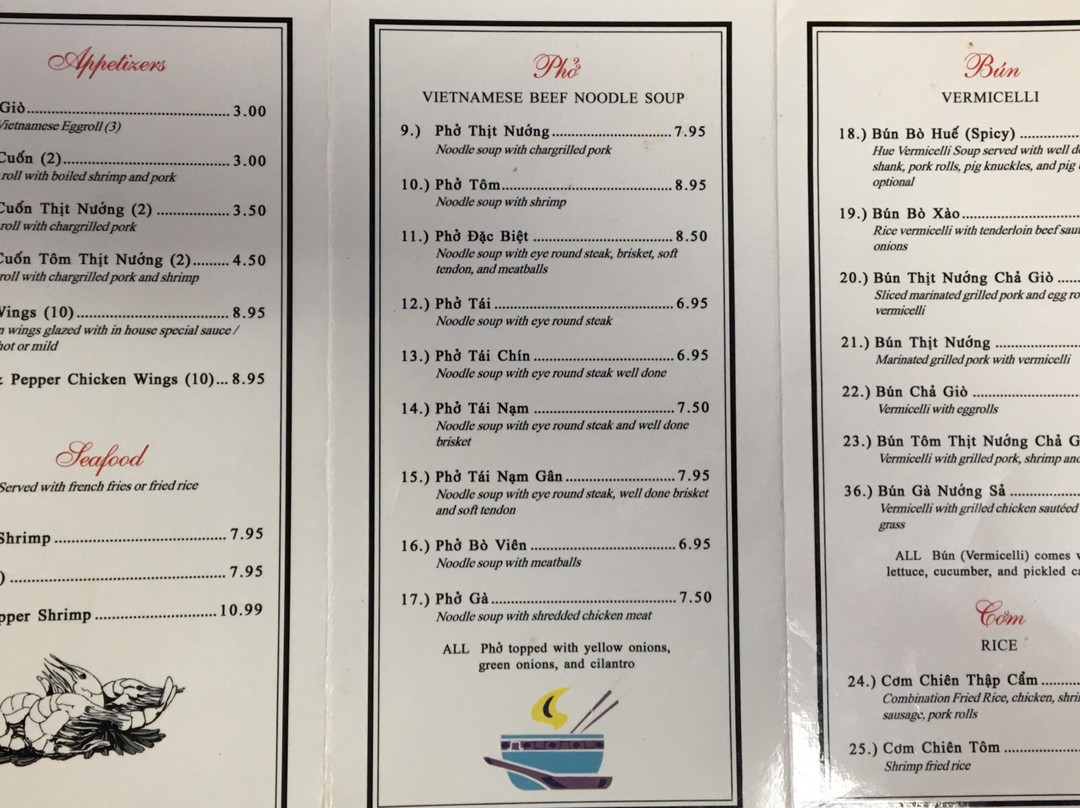 Appetizers
Giò 3.00
Vietnamese Eggroll (3)
Cuốn (2) 3.00
roll with boiled shrimp and pork
Cuốn Thịt Nướng (2) 3.50
roll with chargrilled pork
Cuốn Tôm Thịt Nướng (2) 4.50
roll with chargrilled pork and shrimp
Wings (10) 8.95
wings glazed with in house special sauce /
hot or mild
Pepper Chicken Wings (10) 8.95
Seafood
Served with french fries or fried rice
Shrimp 7.95
) 7.95
pper Shrimp 10.99
Phở
VIETNAMESE BEEF NOODLE SOUP
9.) Phở Thịt Nướng 7.95
Noodle soup with chargrilled pork
10.) Phở Tôm 8.95
Noodle soup with shrimp
11.) Phở Đặc Biệt 8.50
Noodle soup with eye round steak, brisket, soft
tendon, and meatballs
12.) Phở Tái 6.95
Noodle soup with eye round steak
13.) Phở Tái Chín 6.95
Noodle soup with eye round steak well done
14.) Phở Tái Nạm 7.50
Noodle soup with eye round steak and well done
brisket
15.) Phở Tái Nạm Gân 7.95
Noodle soup with eye round steak, well done brisket
and soft tendon
16.) Phở Bò Viên 6.95
Noodle soup with meatballs
17.) Phở Gà 7.50
Noodle soup with shredded chicken meat
ALL Phở topped with yellow onions,
green onions, and cilantro
Bún
VERMICELLI
18.) Bún Bò Huế (Spicy)
Hue Vermicelli Soup served with well d
shank, pork rolls, pig knuckles, and pig
optional
19.) Bún Bò Xào
Rice vermicelli with tenderloin beef sau
onions
20.) Bún Thịt Nướng Chả Giò
Sliced marinated grilled pork and egg ro
vermicelli
21.) Bún Thịt Nướng
Marinated grilled pork with vermicelli
22.) Bún Chả Giò
Vermicelli with eggrolls
23.) Bún Tôm Thịt Nướng Chả G
Vermicelli with grilled pork, shrimp and
36.) Bún Gà Nướng Sả
Vermicelli with grilled chicken sautéed
grass
ALL Bún (Vermicelli) comes
lettuce, cucumber, and pickled ca
Cơm
RICE
24.) Cơm Chiên Thập Cẩm
Combination Fried Rice, chicken, shri
sausage, pork rolls
25.) Cơm Chiên Tôm
Shrimp fried rice